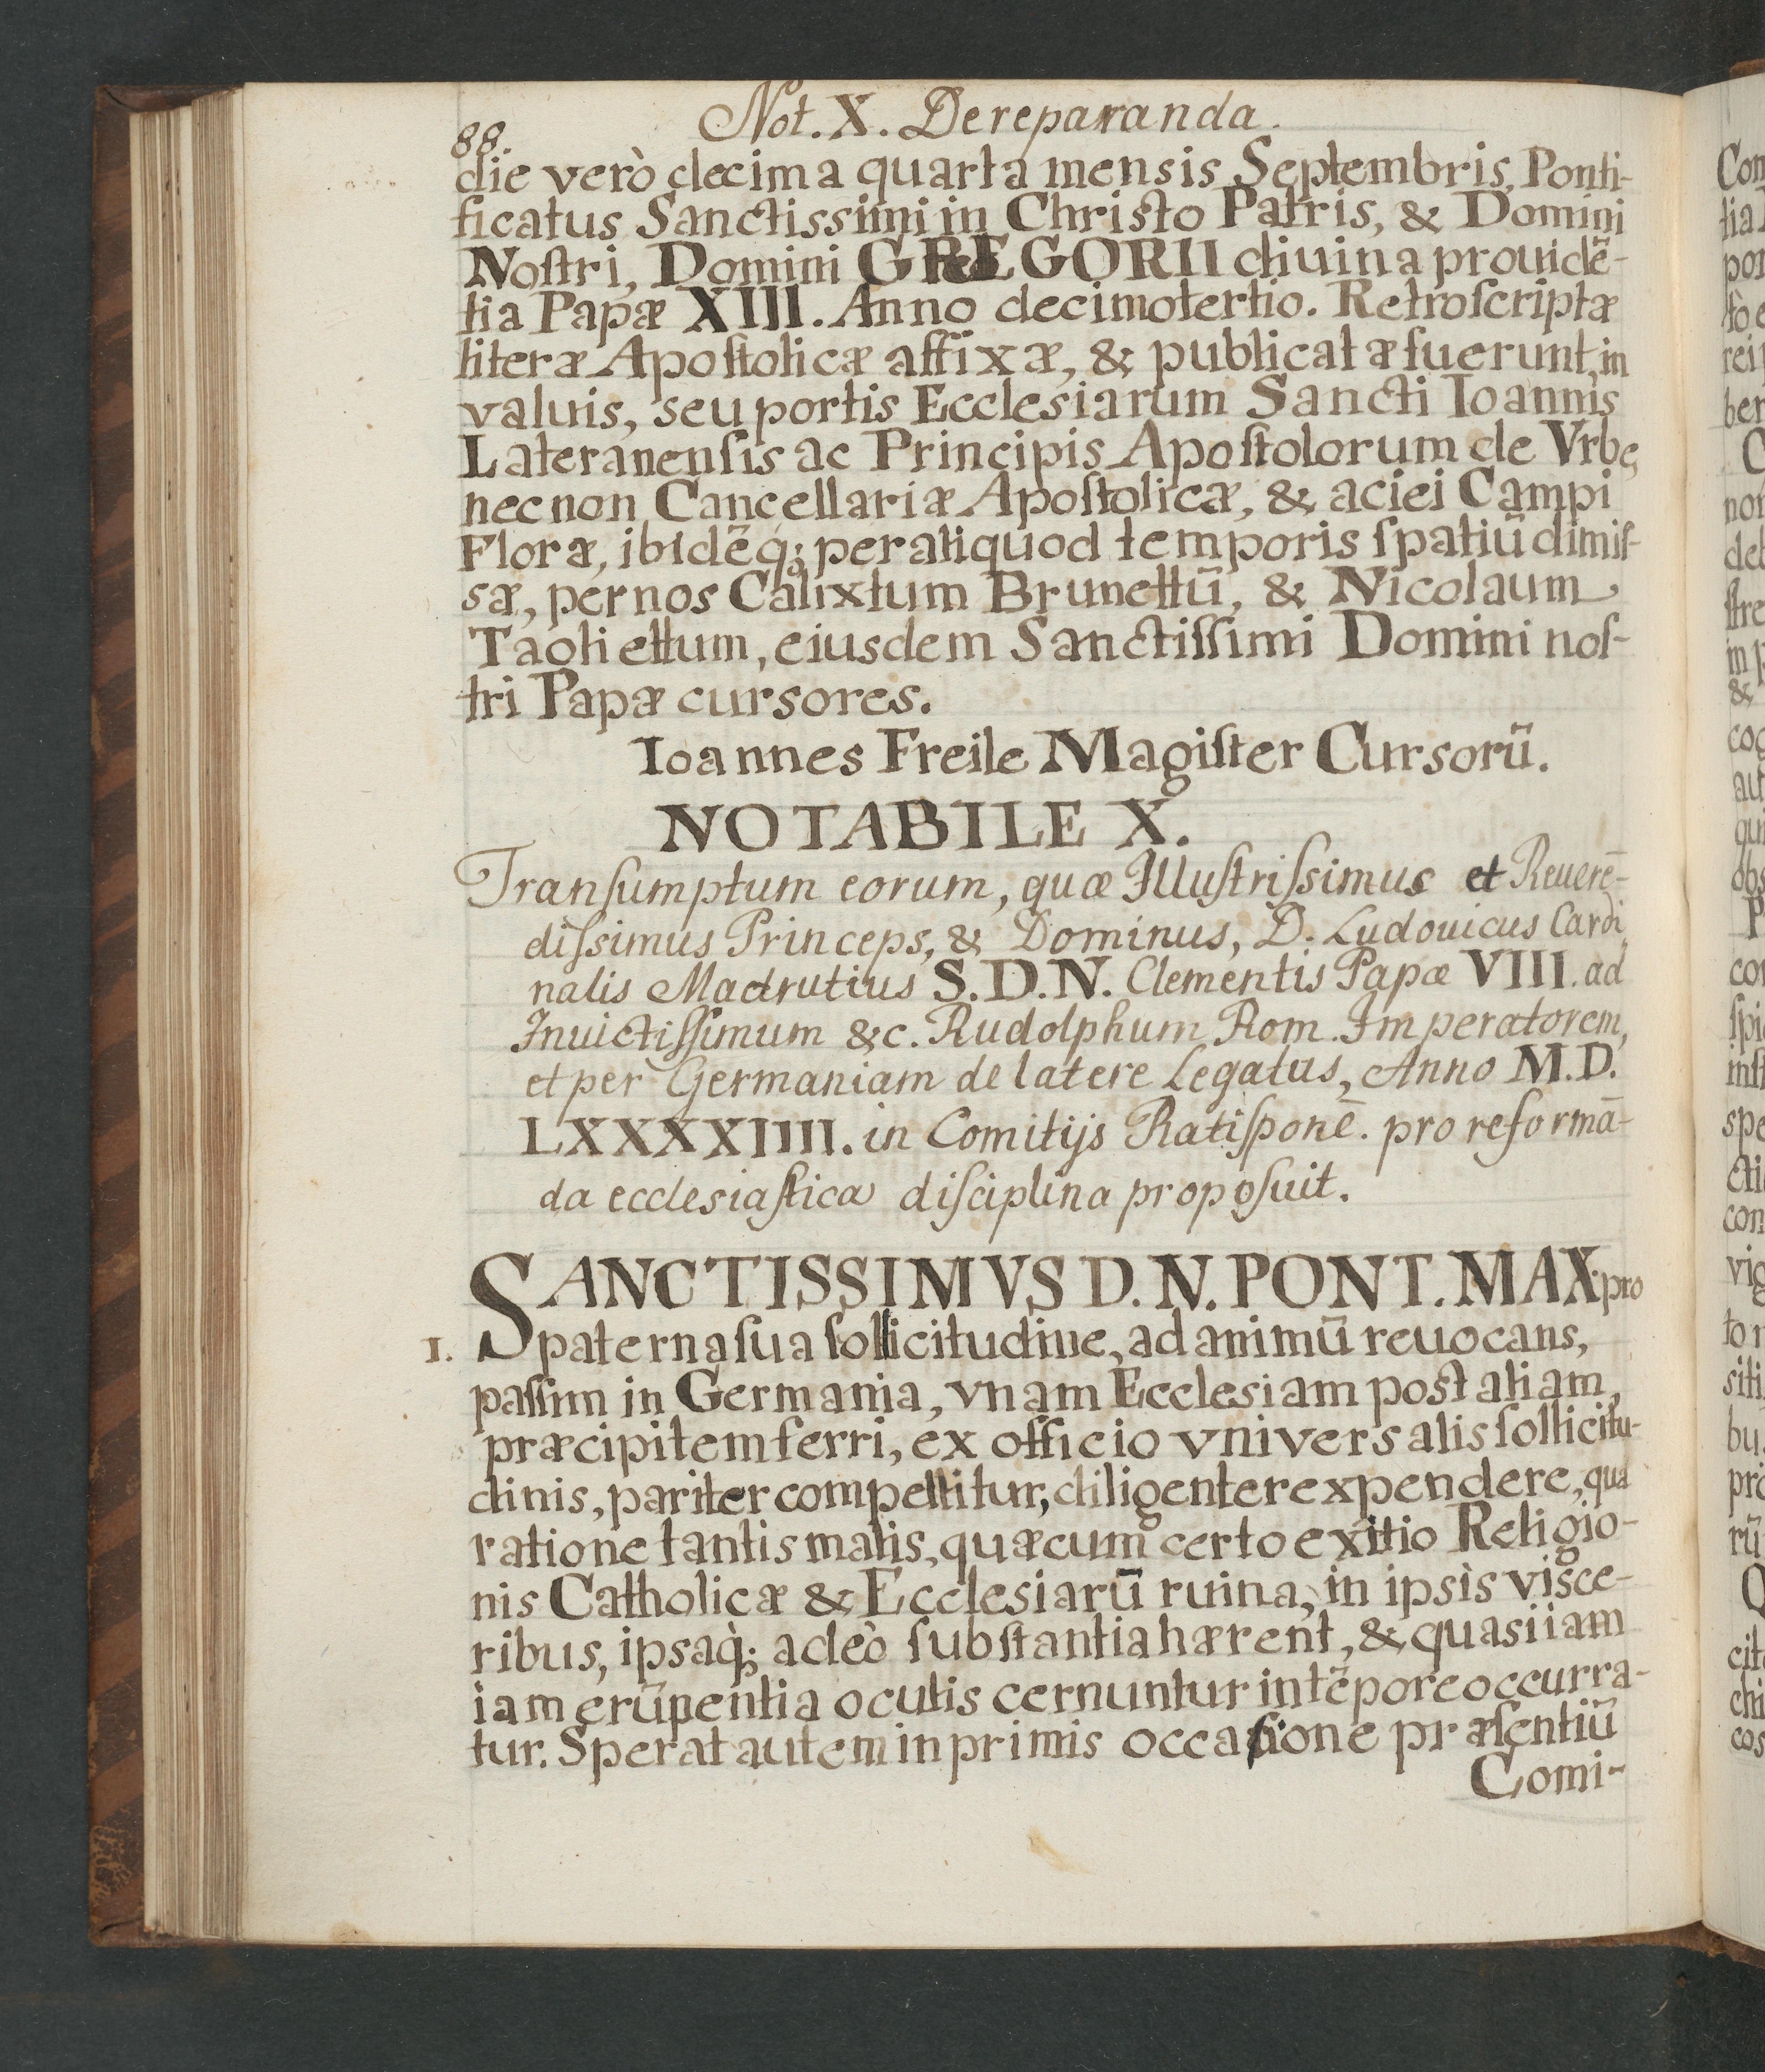 Not. X. De reparanda.
88.
die verò decima quarta mensis Septembris, Ponti-
ficatus Sanctissimi in Christo Patris, & Domini
Noſtri, Domini GREGORII diuina prouidẽ-
tia Papæ XIII. Anno decimotertio. Retroſcriptæ
literæ Apoſtolicæ affixæ, & publicatæ fuerunt, in
valuis, seu portis Ecclesiarum Sancti Ioannis
Lateranenſis ac Principis Apoſtolorum de Vrbe,
necnon Cancellariæ Apoſtolicæ, & aciei Campi
Floræ, ibidẽq; per aliquod temporis ſpatiũ dimiſ-
sæ, per nos Calixtum Brunettũ, & Nicolaum
Tagliettum, eiusdem Sanctiſſimi Domini noſ-
tri Papæ cursores.
Ioannes Freile Magiſter Cursorũ.
NOTABILE X.
Tranſumptum eorum, quæ Illuſtriſsimus et Reuerẽ-
diſsimus Princeps, & Dominus, D. Ludouicus Cardi
nalis Madrutius S. D. N. Clementis Papæ VIII. ad
Inuictiſſimum &c. Rudolphum Rom. Imperatorem,
et per Germaniam de latere Legatus, Anno M.D.
LXXXXIIII. in Comitijs Ratiſponẽ. pro reformã-
da eccleſiaſtica diſciplina propoſuit.
SANCTISSIMVS D. N. PONT. MAX. pro
1. paterna ſua ſollicitudine, ad animũ reuocans,
paſſim in Germania, vnam Ecclesiam post aliam,
præcipitem ferri, ex officio vniversalis ſollicitu-
dinis, pariter compellitur, diligenter expendere, qua
ratione tantis malis, quæ cum certo exitio Religio-
nis Catholicæ & Ecclesiarũ ruina, in ipsis visce-
ribus, ipsaq; adeò ſubſtantia hærent, & quasi iam
iam erũpentia oculis cernuntur in tẽpore occurra-
tur. Sperat autem in primis occaſione præſentiũ
Comi-